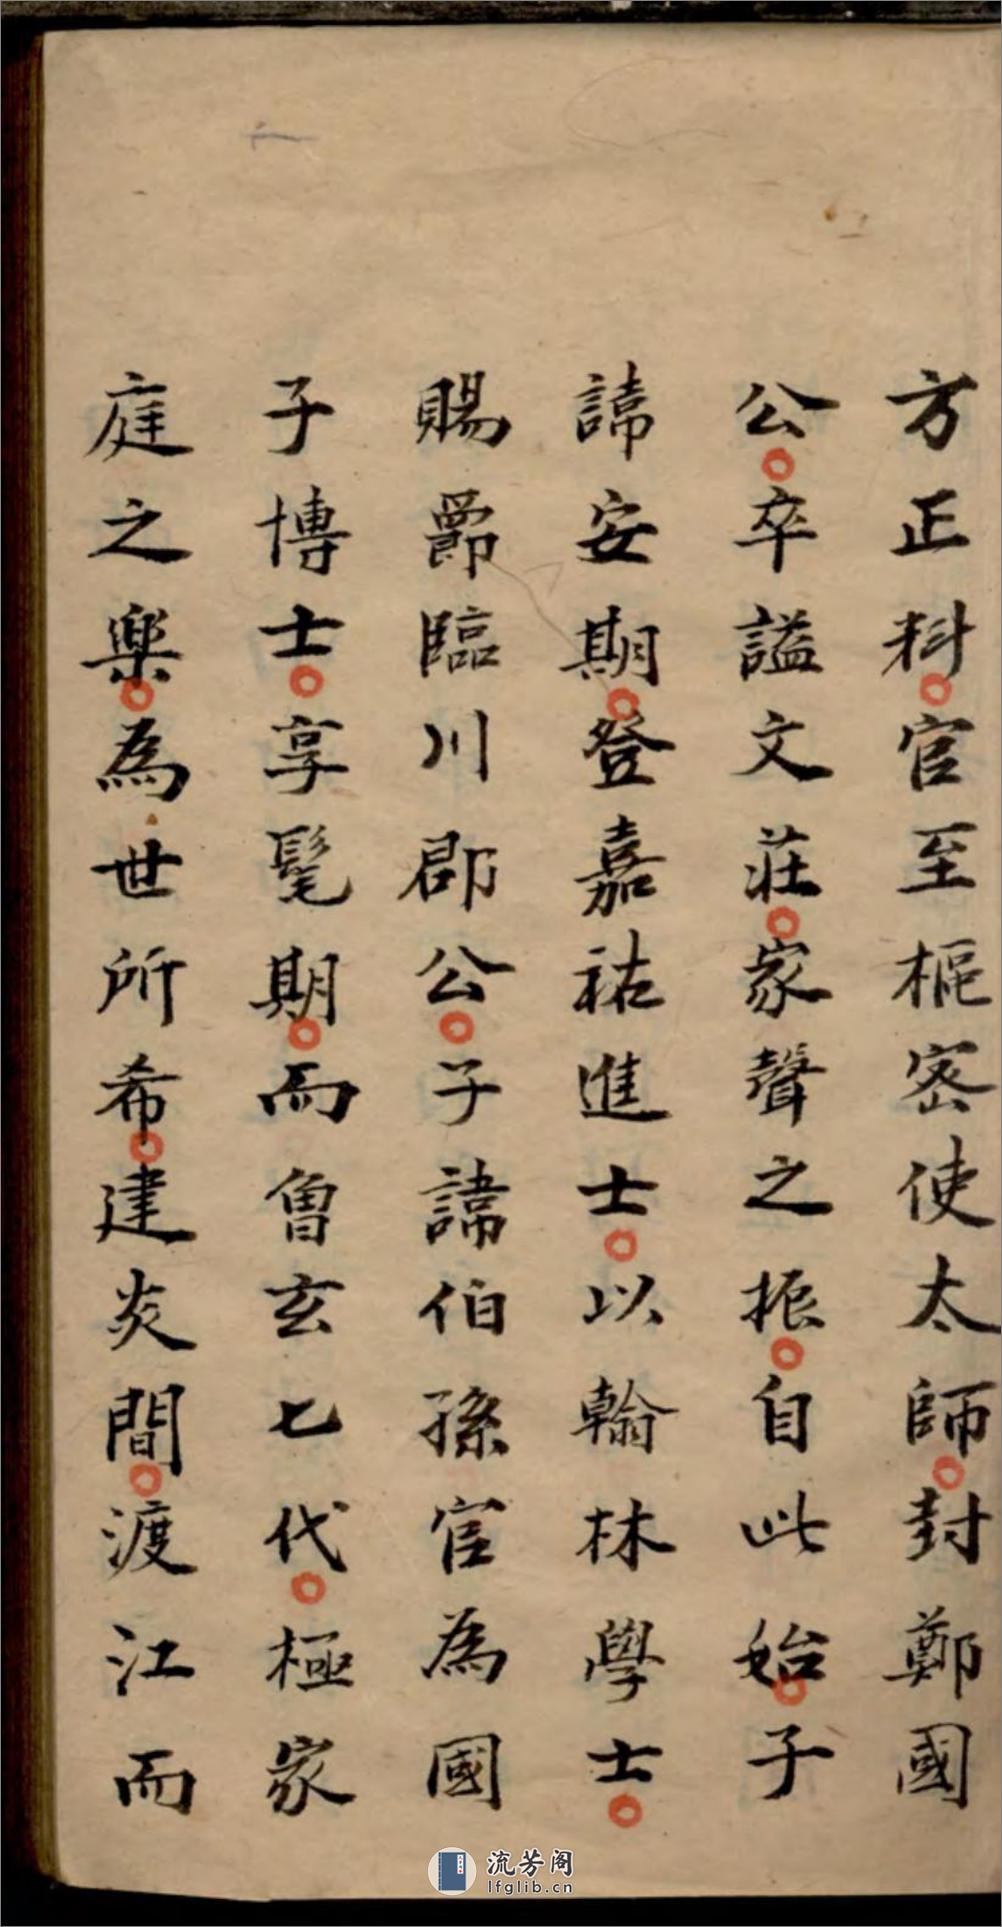 方正科官至樞密使太師封鄭國
公卒謚文莊家聲之振自此始子
諱安期登嘉祐進士以翰林學士
賜爵臨川郡公子諱伯孫官為國
子博士享髦期而曾玄七代極家
庭之樂為世所希建炎間渡江而
流芳阁
lfglib.cn